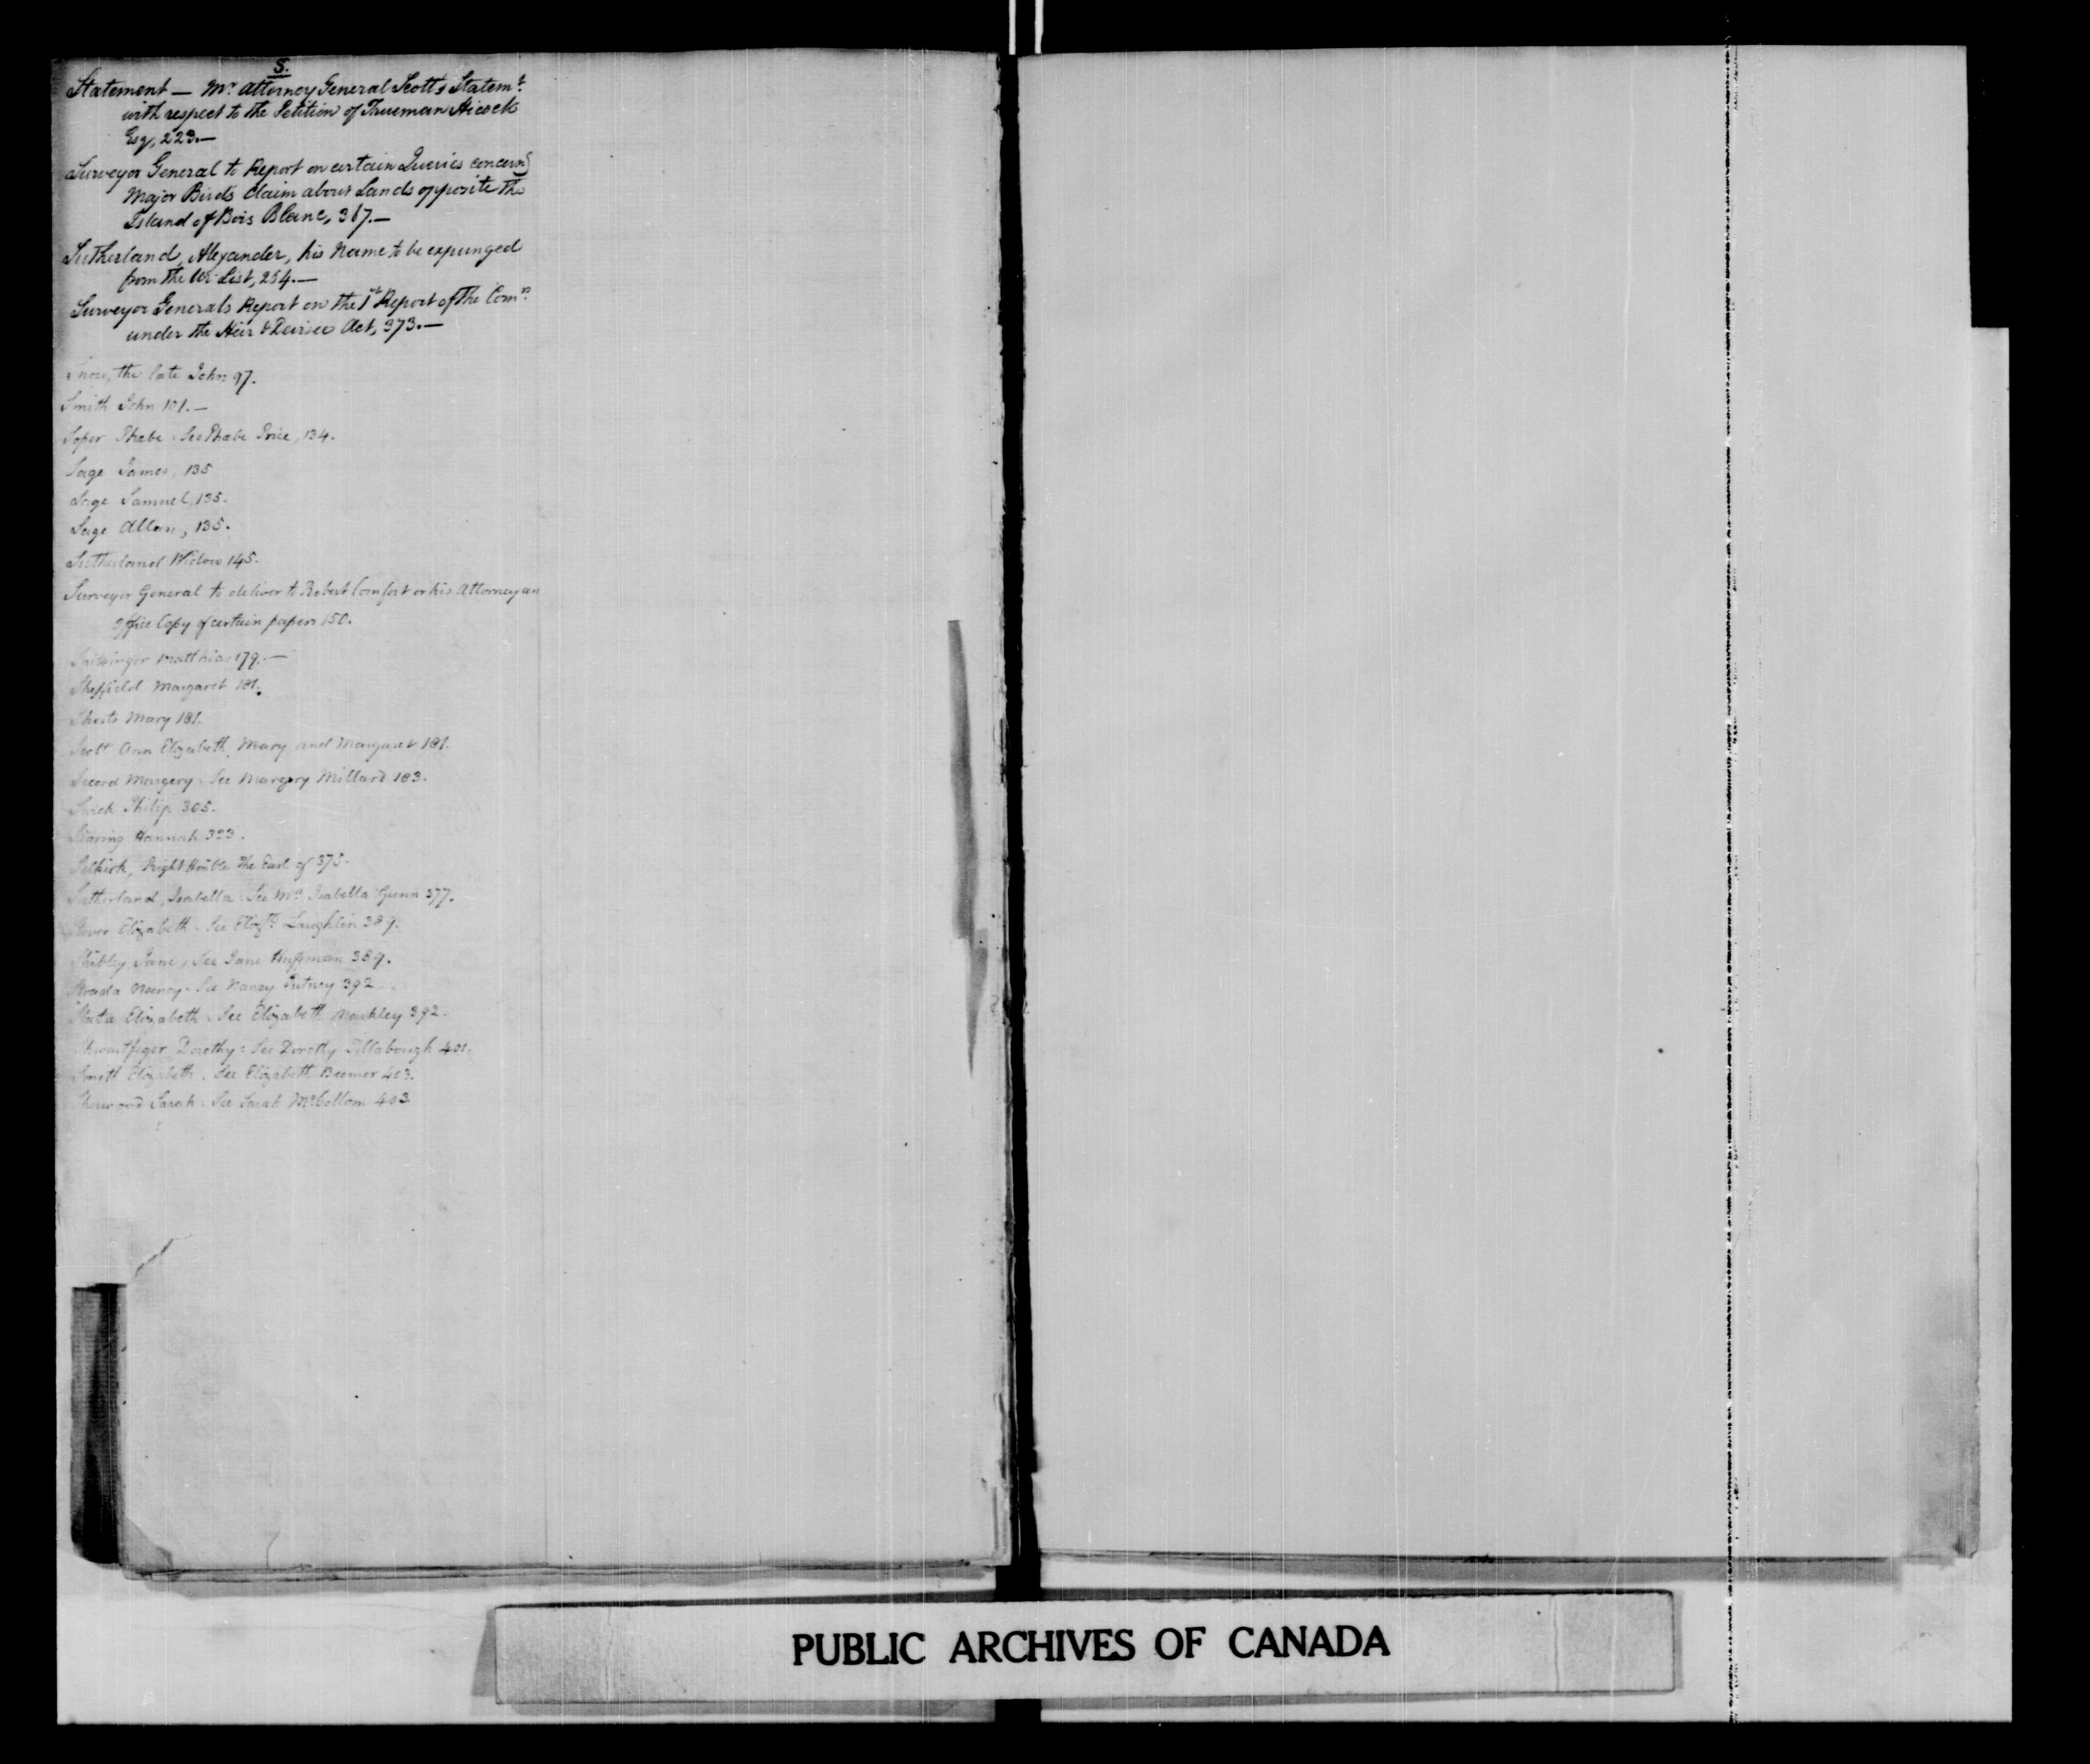 S.
Statement — Mr. Attorney General Scott's Statemt.
with respect to the Petition of Trueman Hicock
Esq, 229.—
Surveyor General to Report on certain Queries concerng
Major Bird's Claim about Lands opposite the
Island of Bois Blanc, 367.—
Sutherland, Alexander, his Name to be expunged
from the UE List, 254.—
Surveyor Generals Report on the 1st Report of the Comn.
under the Heir & Devisee Act, 373.—
the late John 97.
Smith John 101.—
Soper Phabe - See Phabe Price, 134.
Sage James, 135
Sage Samuel, 135.
Sage Allan, 135.
Sutherland Widow 145.
Surveyor General to deliver to Robert Comfort or his Attorney an
Office Copy of certain papers 150.
Matthias 179.—
Sheffield Margaret 181.
Shorts Mary 181.
Scott Ann Elizabeth, Mary and Margaret 181.
Secord Margery - See Margery Millard 183.
Philip 305.
Staring Hannah 323.
Selkirk, Right Honble. the Earl of 375.
Sutherland, Isabella - See Mrs. Isabella Gunn 377.
Elizabeth - See Elizth. Laughlin 389.
Shibley Jane, See Jane Huffman 389.
Strada Nancy - See Nancy Putney 392
Slata Elizabeth - See Elizabeth Markley 392.
Shwartfeger Dorothy - See Dorothy Dillabough 401.
Smith Elizabeth - See Elizabeth Beemer 403.
Sherwood Sarah - See Sarah McCollom 403
PUBLIC ARCHIVES OF CANADA